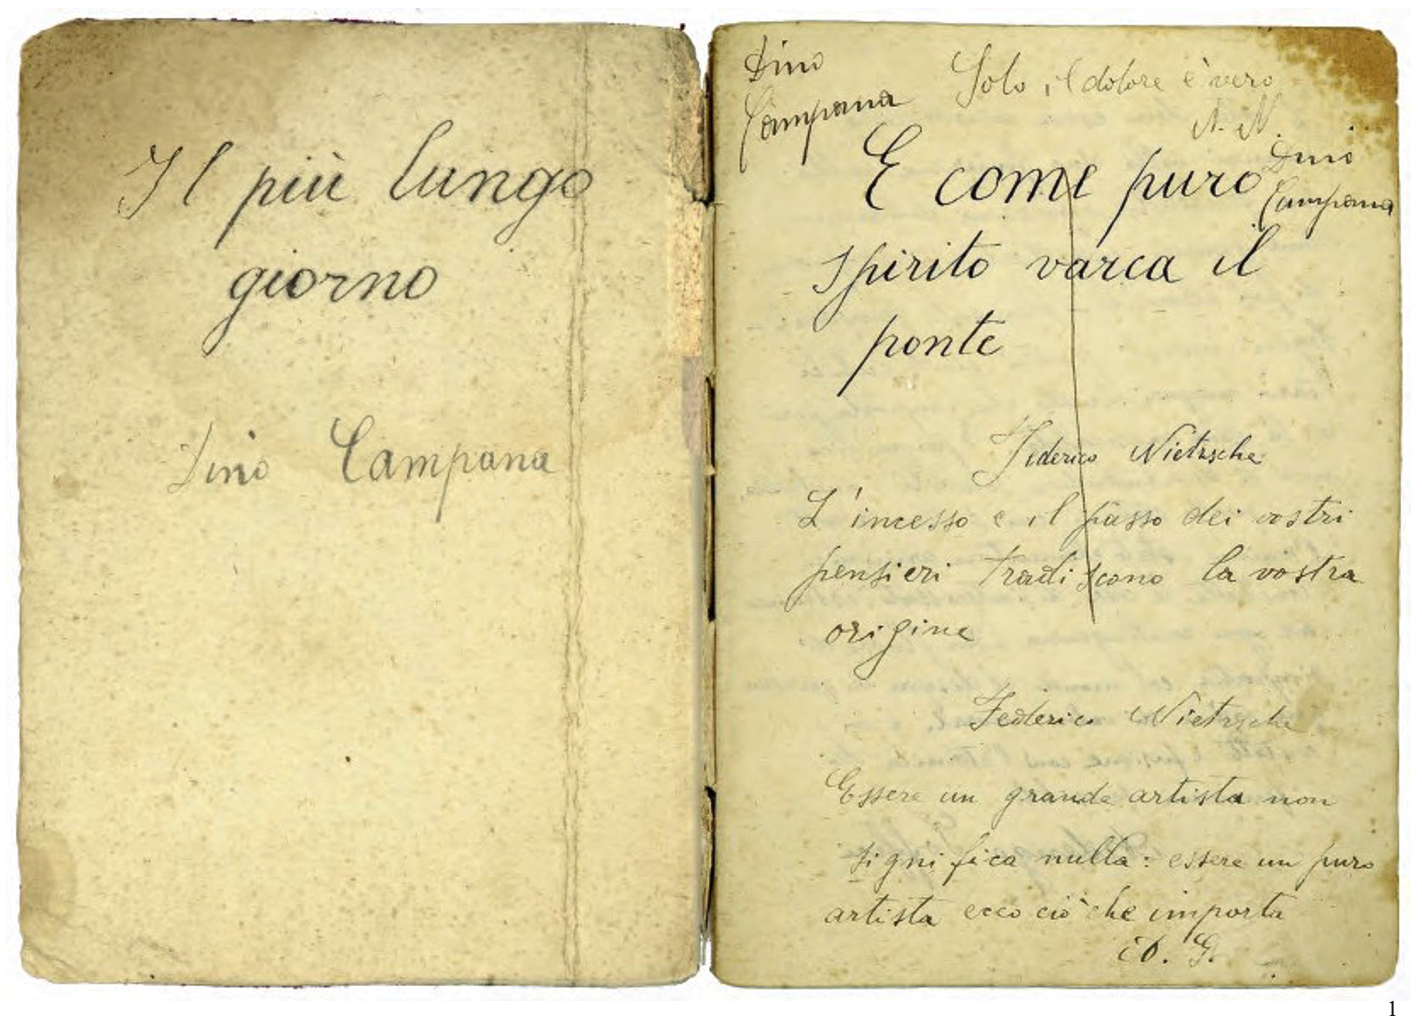 Il più lungo
giorno
Dino Campana
Dino
Campana
Solo il dolore è vero
N. N.
E come puro
Dino
Campana
spirito varca il
ponte
Federico Nietzsche
L'incesso e il passo dei vostri
pensieri tradiscono la vostra
origine
Federico Nietzsche
Essere un grande artista non
significa nulla: essere un puro
artista ecco ciò che importa
1